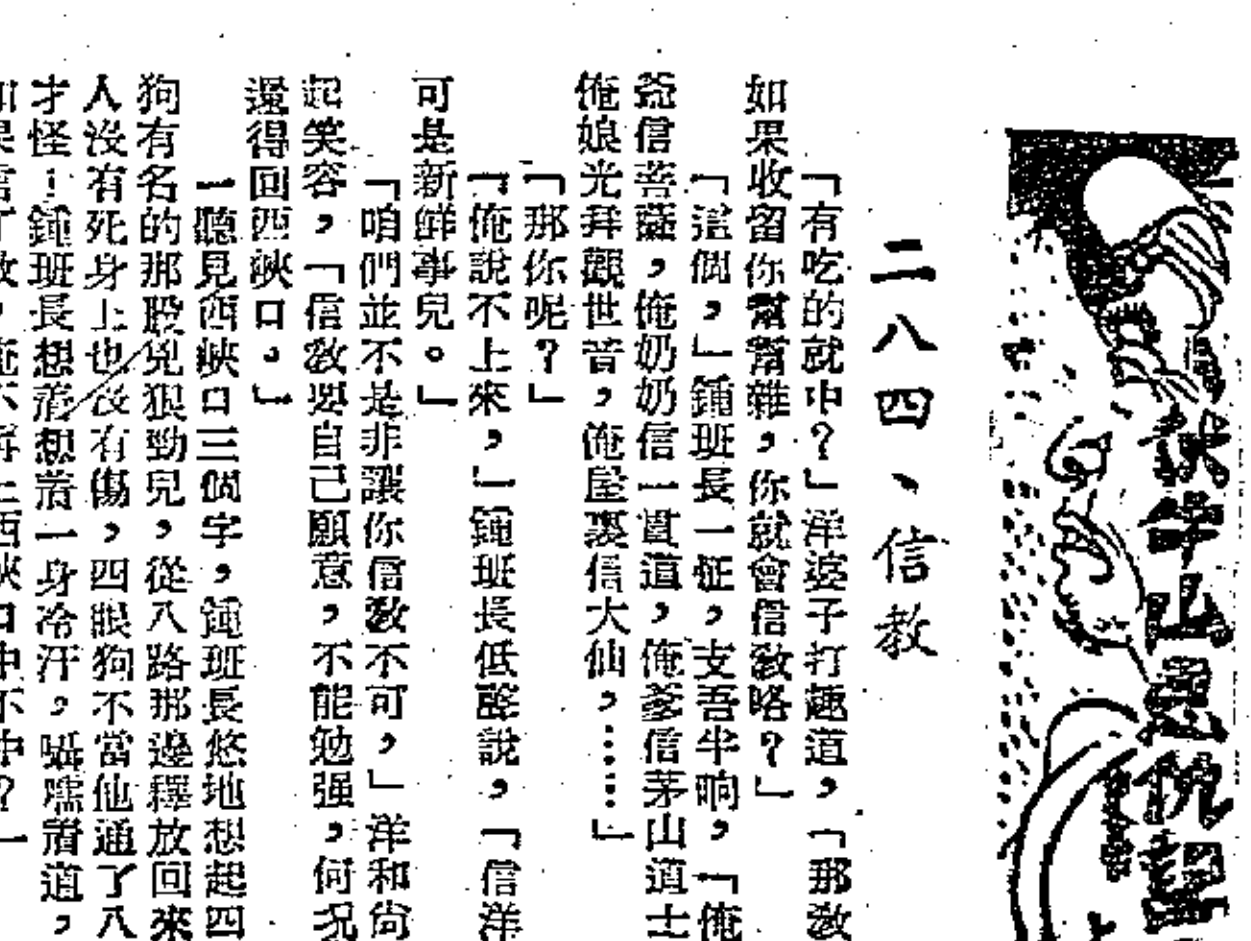 伏牛山恩仇記
二八四、信教
「有吃的就中?」洋婆子打趣道,「那教
如果收留你幫幫雜,你就會信教咯?」
「這個,」鍾班長一怔,支吾半晌,「俺
爺信菩薩,俺奶奶信一貫道,俺爹信茅山道士
俺娘光拜觀世音,俺屋裏信大仙,……」
「那你呢?」
「俺說不上來,」鍾班長低聲說,「信洋
可是新鮮事兒。」
「咱們並不是非讓你信教不可,」洋和尚
起笑容,「信教要自己願意,不能勉强,何況
還得回西峽口。」
一聽見西峽口三個字,鍾班長悠地想起四
狗有名的那股兇狠勁兒,從八路那邊釋放回來
人沒有死身上也沒有傷,四眼狗不當他通了八
才怪!鍾班長想着想着一身冷汗。囁嚅着道,
如果信了教,俺不再上西峽口中不中?」